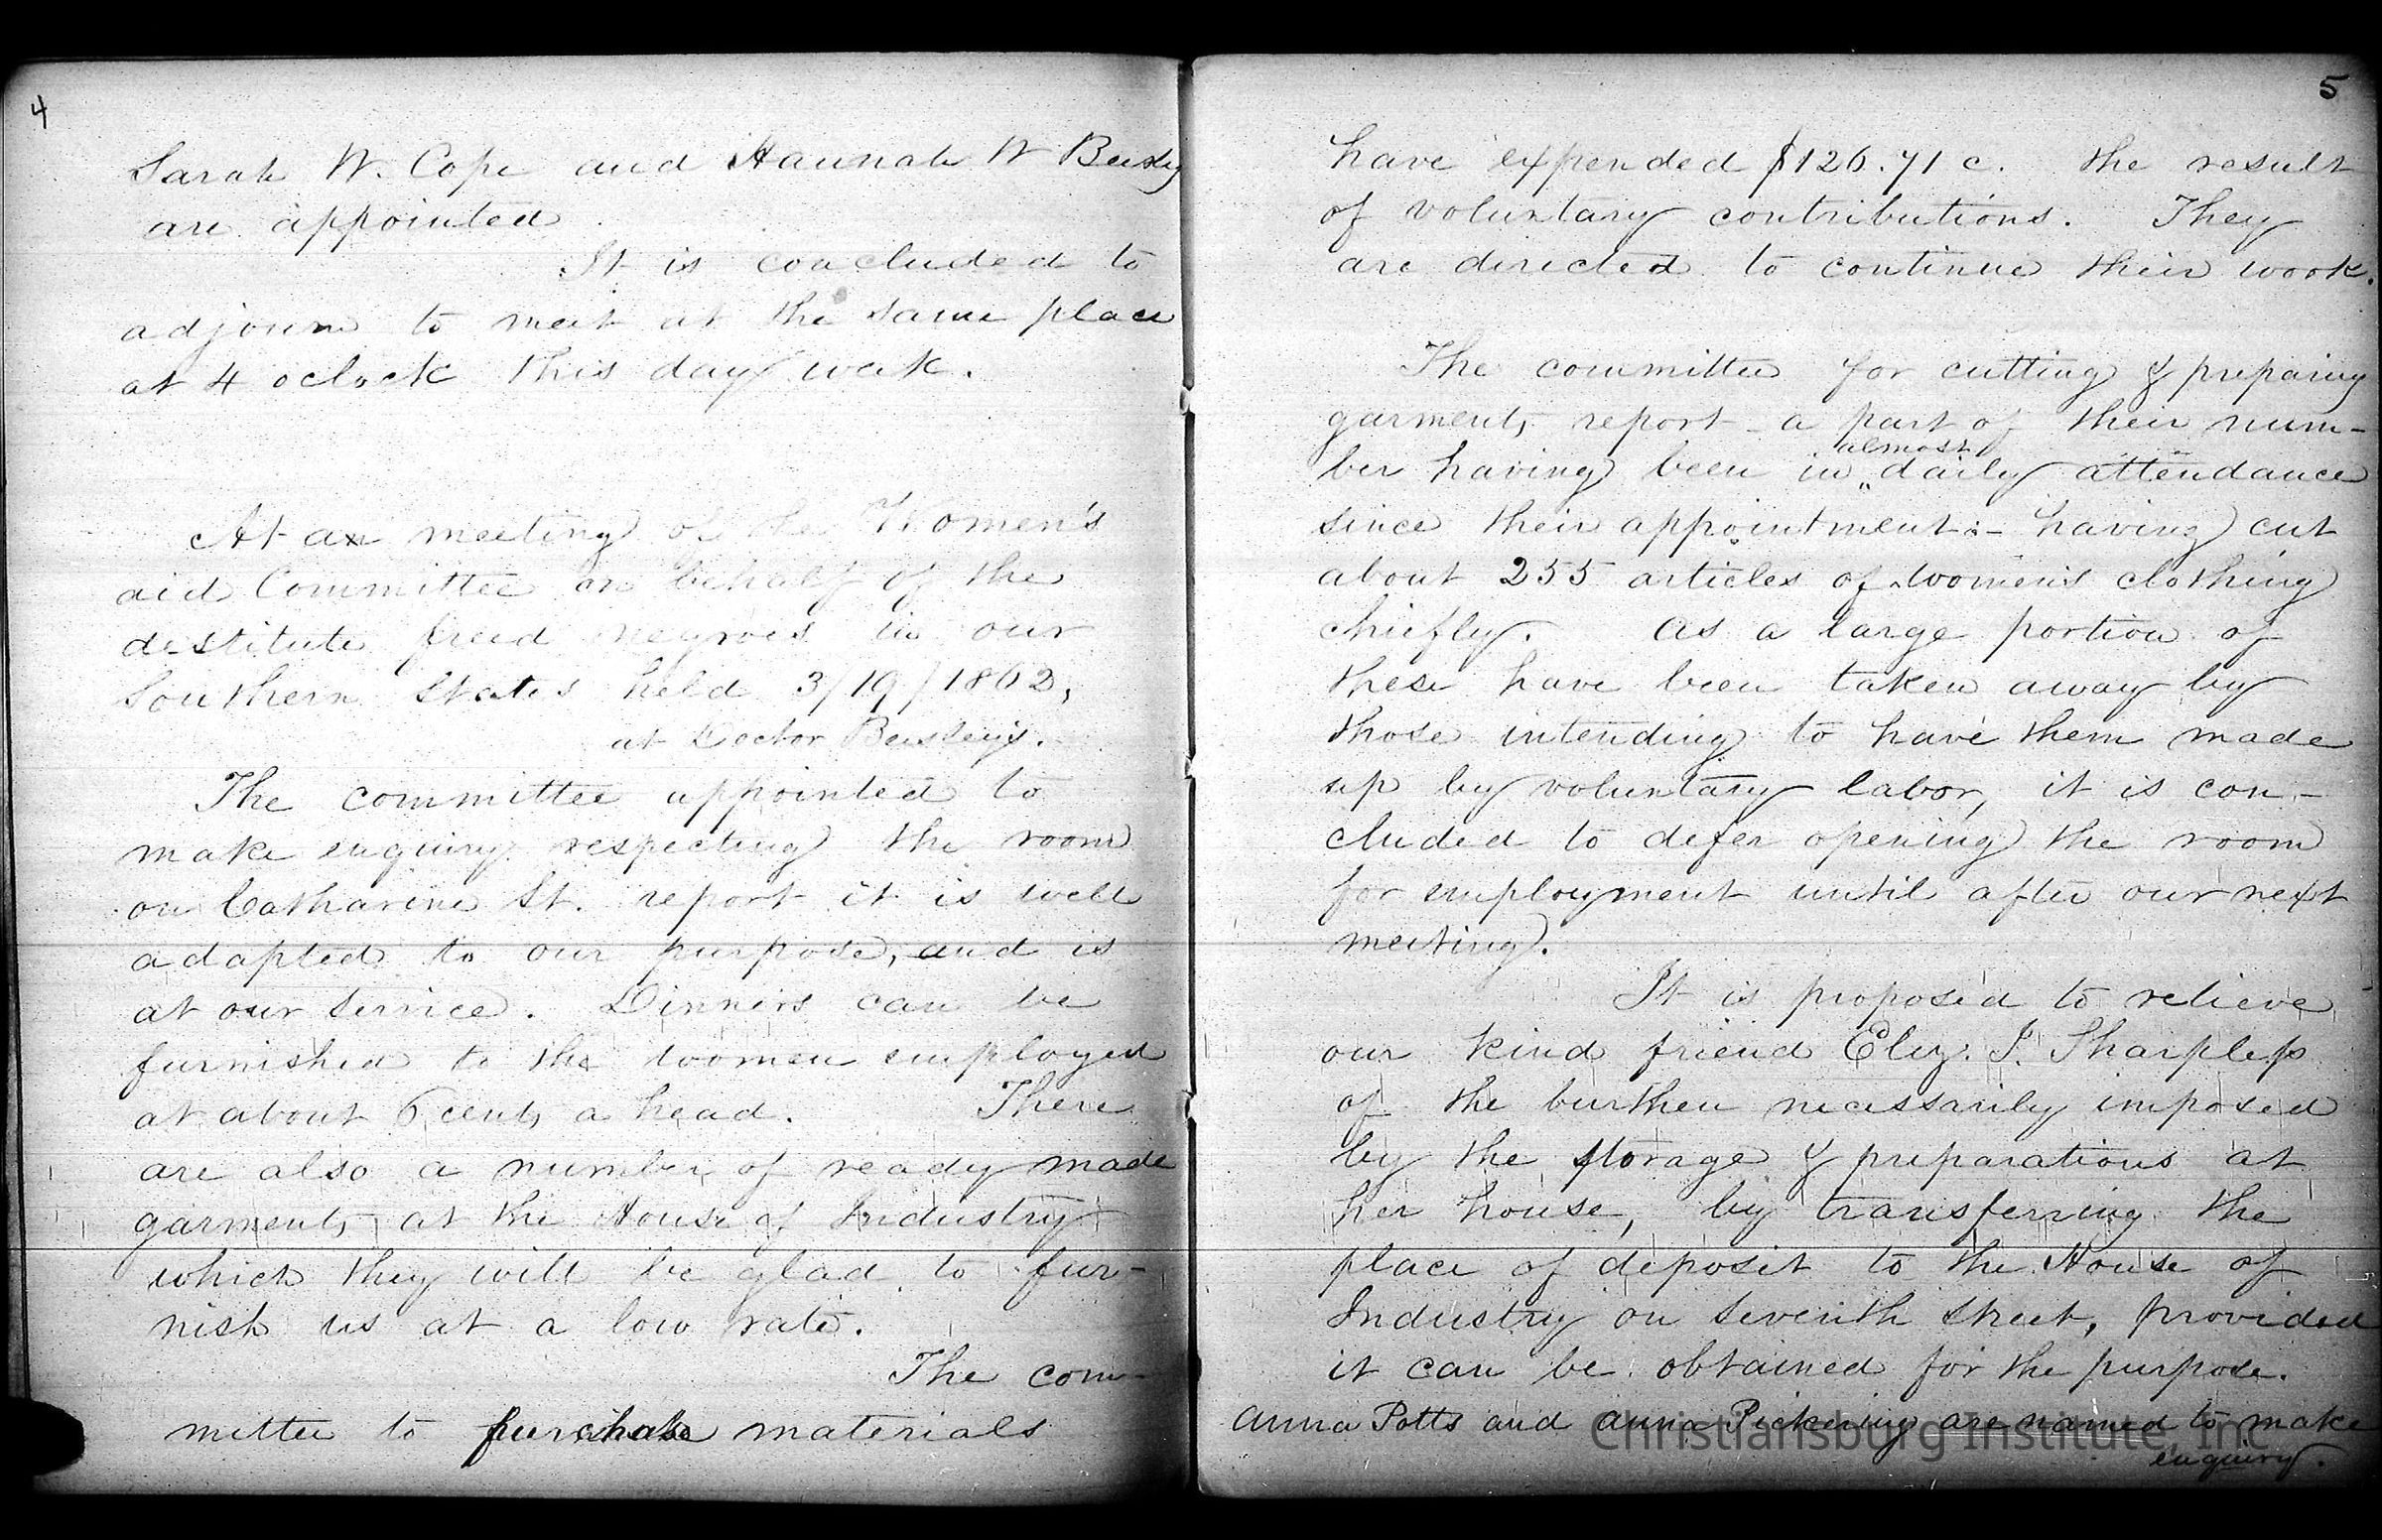 4
Sarah W. Cope and Hannah W Beesley
are appointed
It is concluded to
adjourn to meet at the same place
at 4 oclock this day week.
At a meeting of the Women's
aid Committee on behalf of the
destitute freed negroes in our
Southern States held 3/19/1862,
at Doctor Beesley's.
The committee appointed to
make enquiry respecting the room
on Catharine St. report it is well
adapted to our purpose, and is
at our service. Dinners can be
furnished to the women employed
at about 6 cents a head. There
are also a number of ready made
garments at the House of Industry
which they will be glad to fur-
nish us at a low rate.
The com-
mittee to purchase materials
5
have expended $126.71 c. the result
of voluntary contributions. They
are directed to continue their work.
The committee for cutting & preparing
garments report a part of their num-
ber having been in almost daily attendance
since their appointment:- having cut
about 255 articles of women's clothing
chiefly. As a large portion of
these have been taken away by
those intending to have them made
up by voluntary labor, it is con-
cluded to defer opening the room
for employment until after our next
meeting.
It is proposed to relieve
our kind friend Eliz. J. Sharpless
of the burthen necessarily imposed
by the storage & preparations at
her house, by transferring the
place of deposit to the House of
Industry on Seventh Street, provided
it can be obtained for the purpose.
Anna Potts and Anna Pickering are named to make
enquiry.
Christiansburg Institute, Inc